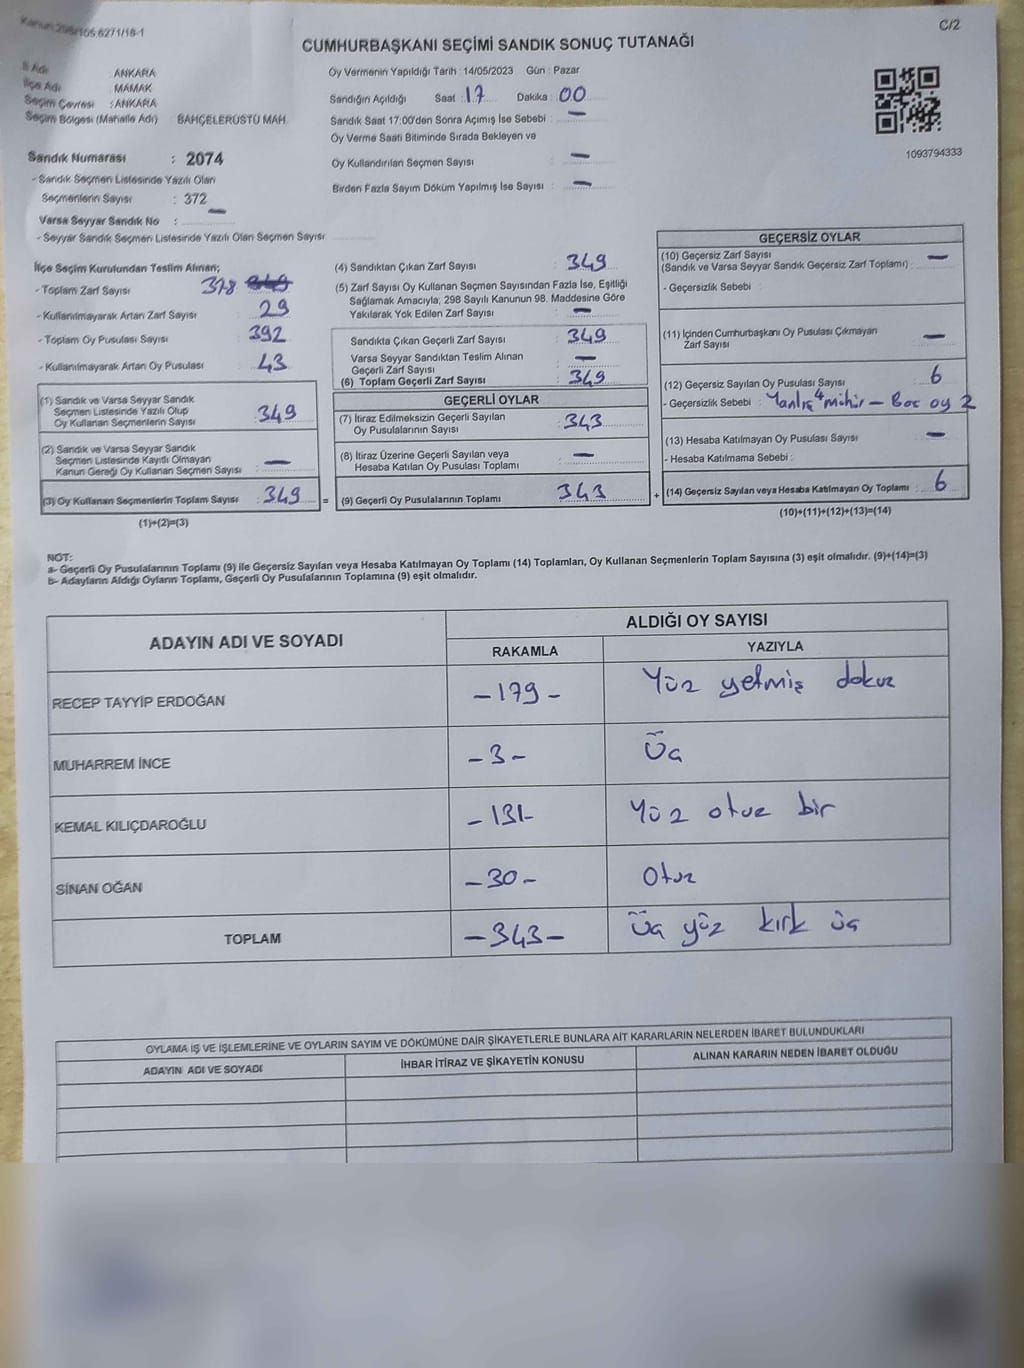 Kanun:298/105:6271/18-1
C/2
CUMHURBAŞKANI SEÇİMİ SANDIK SONUÇ TUTANAĞI
İl Adı : ANKARA
İlçe Adı : MAMAK
Seçim Çevresi : ANKARA
Seçim Bölgesi (Mahalle Adı) : BAHÇELERÜSTÜ MAH.
Sandık Numarası : 2074
- Sandık Seçmen Listesinde Yazılı Olan
Seçmenlerin Sayısı : 372
Varsa Seyyar Sandık No : —
- Seyyar Sandık Seçmen Listesinde Yazılı Olan Seçmen Sayısı
Oy Vermenin Yapıldığı Tarih : 14/05/2023 Gün : Pazar
Sandığın Açıldığı Saat : 17 Dakika : 00
Sandık Saat 17:00'den Sonra Açımış İse Sebebi : —
Oy Verme Saati Bitiminde Sırada Bekleyen ve
Oy Kullandırılan Seçmen Sayısı : —
Birden Fazla Sayım Döküm Yapılmış İse Sayısı : —
1093794333
İlçe Seçim Kurulundan Teslim Alınan;
- Toplam Zarf Sayısı 378
- Kullanılmayarak Artan Zarf Sayısı 29
- Toplam Oy Pusulası Sayısı 392
- Kullanılmayarak Artan Oy Pusulası 43
(1) Sandık ve Varsa Seyyar Sandık
Seçmen Listesinde Yazılı Olup
Oy Kullanan Seçmenlerin Sayısı : 349
(2) Sandık ve Varsa Seyyar Sandık
Seçmen Listesinde Kayıtlı Olmayan
Kanun Gereği Oy Kullanan Seçmen Sayısı : —
(3) Oy Kullanan Seçmenlerin Toplam Sayısı : 349 =
(1)+(2)=(3)
(4) Sandıktan Çıkan Zarf Sayısı 349
(5) Zarf Sayısı Oy Kullanan Seçmen Sayısından Fazla İse, Eşitliği
Sağlamak Amacıyla; 298 Sayılı Kanunun 98. Maddesine Göre
Yakılarak Yok Edilen Zarf Sayısı : —
Sandıkta Çıkan Geçerli Zarf Sayısı : 349
Varsa Seyyar Sandıktan Teslim Alınan
Geçerli Zarf Sayısı : —
(6) Toplam Geçerli Zarf Sayısı : 349
GEÇERLİ OYLAR
(7) İtiraz Edilmeksizin Geçerli Sayılan
Oy Pusulalarının Sayısı : 343
(8) İtiraz Üzerine Geçerli Sayılan veya
Hesaba Katılan Oy Pusulası Toplamı : —
(9) Geçerli Oy Pusulalarının Toplamı : 343 +
GEÇERSİZ OYLAR
(10) Geçersiz Zarf Sayısı
(Sandık ve Varsa Seyyar Sandık Geçersiz Zarf Toplamı) : —
- Geçersizlik Sebebi :
(11) İçinden Cumhurbaşkanı Oy Pusulası Çıkmayan
Zarf Sayısı : —
(12) Geçersiz Sayılan Oy Pusulası Sayısı : 6
- Geçersizlik Sebebi : Yanlış 4 mühür — Boş oy 2
(13) Hesaba Katılmayan Oy Pusulası Sayısı : —
- Hesaba Katılmama Sebebi :
(14) Geçersiz Sayılan veya Hesaba Katılmayan Oy Toplamı : 6
(10)+(11)+(12)+(13)=(14)
NOT:
a- Geçerli Oy Pusulalarının Toplamı (9) ile Geçersiz Sayılan veya Hesaba Katılmayan Oy Toplamı (14) Toplamları, Oy Kullanan Seçmenlerin Toplam Sayısına (3) eşit olmalıdır. (9)+(14)=(3)
b- Adayların Aldığı Oyların Toplamı, Geçerli Oy Pusulalarının Toplamına (9) eşit olmalıdır.
ADAYIN ADI VE SOYADI ALDIĞI OY SAYISI
RAKAMLA YAZIYLA
RECEP TAYYİP ERDOĞAN -179- Yüz yetmiş dokuz
MUHARREM İNCE -3- Üç
KEMAL KILIÇDAROĞLU -131- Yüz otuz bir
SİNAN OĞAN -30- Otuz
TOPLAM -343- Üç yüz kırk üç
OYLAMA İŞ VE İŞLEMLERİNE VE OYLARIN SAYIM VE DÖKÜMÜNE DAİR ŞİKAYETLERLE BUNLARA AİT KARARLARIN NELERDEN İBARET BULUNDUKLARI
ADAYIN ADI VE SOYADI İHBAR İTİRAZ VE ŞİKAYETİN KONUSU ALINAN KARARIN NEDEN İBARET OLDUĞU